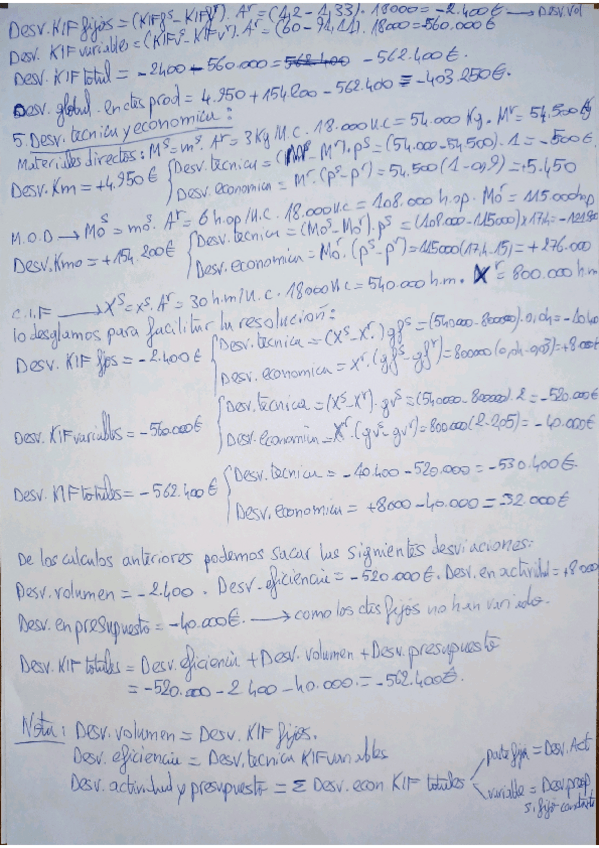 Desv. KIF fijos = (KIFf^s - KIFf^r) . A^r = (1,2 - 1,33) . 18000 = -2.400€ → Desv. Vol
Desv. KIF variables = (KIFv^s - KIFv^r) . A^r = (60 - 91,11) . 18000 = -560.000€
Desv. KIF total = -2400 - 560.000 = 562.400 - 562.400€.
Desv. global en ctes prod = 4.950 + 154200 - 562.400 = -403.250€.
5. Desv. tecnica y economica:
Materiales directos: M^s = m^s. A^r = 3 Kg/U.C. 18.000 u.c = 54.000 Kg. M^r = 54.500 Kg
Desv. Km = +4.950€ { Desv. tecnica = (M^s - M^r). p^s = (54.000 - 54.500) . 1 = -500€.
Desv. economica = M^r. (p^s - p^r) = 54.500 (1 - 0,9) = +5.450
M.O.D → Mo^s = mo^s. A^r = 6 h.op/U.C. 18.000 u.c = 108.000 h.op. Mo^r = 115.000 hop
Desv. Kmo = +154.200€ { Desv. tecnica = (Mo^s - Mo^r). p^s = (108.000 - 115000) 17,4 = -121.800
Desv. economica = Mo^r. (p^s - p^r) = 115000 (17,4 - 15) = +276.000
C.I.F → X^s = x^s. A^r = 30 h.m/U.C. 18000 u.c = 540.000 h.m. X^r = 800.000 h.m
lo desglamos para facilitar la resolución:
Desv. KIF fijos = -2.400€ { Desv. tecnica = (X^s - X^r.) gf^s = (540.000 - 800000) . 0,04 = -10.400
Desv. economica = X^r. (gf^s - gf^r) = 800000 (0,04 - 0,03) = +8000€
Desv. KIF variables = -560.000€ { Desv. tecnica = (X^s - X^r). gv^s = (540000 - 800000) . 2 = -520.000€
Desv. economica = X^r. (gv^s - gv^r) = 800.000 (2 - 2,05) = -40.000€
Desv. KIF totales = -562.400€ { Desv. tecnica = -10.400 - 520.000 = -530.400€.
Desv. economica = +8000 - 40.000 = -32.000€
De los calculos anteriores podemos sacar las siguientes desviaciones:
Desv. volumen = -2.400. Desv. eficiencia = -520.000€. Desv. en actividad = +8000
Desv. en presupuesto = -40.000€. → como los ctes fijos no han variado.
Desv. KIF totales = Desv. eficiencia + Desv. volumen + Desv. presupuesto
= -520.000 - 2400 - 40.000 = -562.400€.
Nota: Desv. volumen = Desv. KIF fijos.
Desv. eficiencia = Desv. tecnica KIF variables
Desv. actividad y presupuesto = Σ Desv. econ KIF totales
parte fija = Desv. Act
variable = Desv. presp
si fijo constante